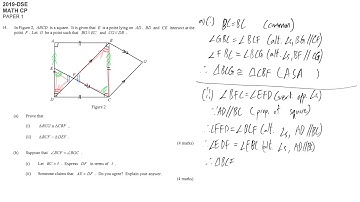 2019-DSE
MATH CP
PAPER 1
14. In Figure 2, ABCD is a square. It is given that E is a point lying on AD. BD and CE intersect at the
point F. Let G be a point such that BG // EC and CG // DB.
Figure 2
(a) Prove that
(i) ΔBCG ≅ ΔCBF,
(ii) ΔBCF ~ ΔDEF.
(4 marks)
(b) Suppose that ∠BCF = ∠BGC.
(i) Let BC = ℓ. Express DF in terms of ℓ.
(ii) Someone claims that AE > DF. Do you agree? Explain your answer.
(4 marks)
a) (i) BC = BC (common)
∠GBC = ∠BCF (alt. ∠s, BG // CF)
∠FBC = ∠BCG (alt. ∠s, BF // CG)
∴ ΔBCG ≅ ΔCBF (ASA)
(ii) ∠BFC = ∠EFD (vert. opp. ∠s)
∵ AD // BC (prop. of square)
∠FED = ∠BCF (alt. ∠s, AD // BC)
∠EDF = ∠FBC (alt. ∠s, AD // BC)
∴ ΔBCF